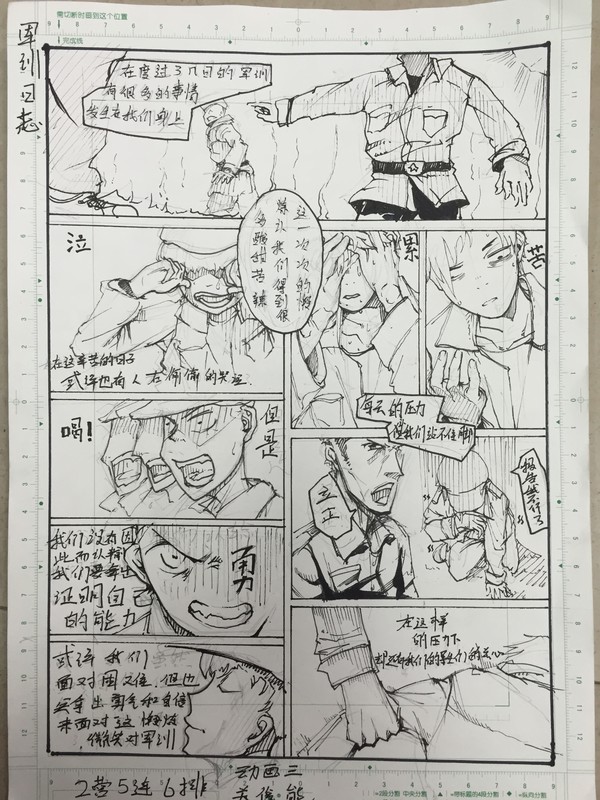 需切断时留到这个位置
完成线
军训日志
在度过了几日的军训
有很多的事情
发生在我们身上
这一次次的磨
炼让我们得到很
多酸甜苦辣
泣
在这辛苦的日子
或许也有人在偷偷的哭泣.
累
苦
每天的压力
但是
喝!
立正
报告我不行了
我们没有因
我们要拿出
证明自己
的能力
勇
在这样
的压力下
或许我们
面对困又倦.但也
要拿出勇气和自信
来面对这
微笑对军训
2营5连6排
动画三